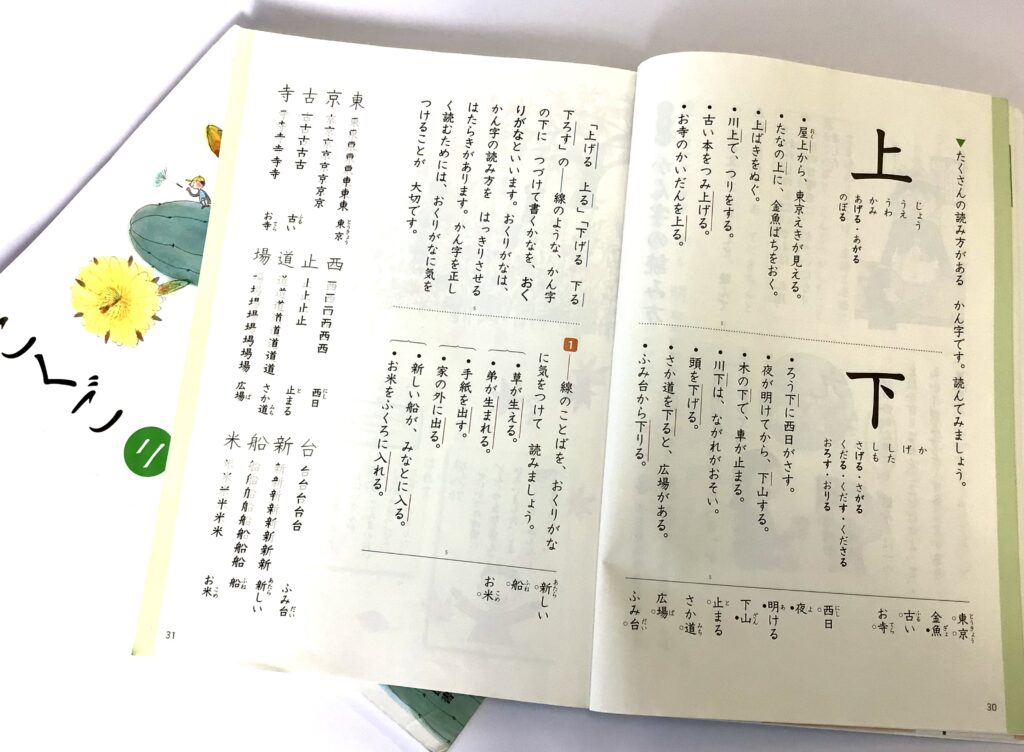 ▼たくさんの読み方がある かん字です。読んでみましょう。
上
じょう
うえ
うわ
かみ
あげる・あがる
のぼる
・屋上から、東京えきが見える。
・たなの上に、金魚ばちをおく。
・上ばきをぬぐ。
・川上で、つりをする。
・古い本をつみ上げる。
・お寺のかいだんを上る。
下
か
げ
した
しも
さげる・さがる
くだる・くだす・くださる
おろす・おりる
・ろう下に西日がさす。
・夜が明けてから、下山する。
・木の下で、車が止まる。
・川下は、ながれがおそい。
・頭を下げる。
・さか道を下ると、広場がある。
・ふみ台から下りる。
東京
金魚
古い
お寺
西日
夜
明ける
下山
止まる
さか道
広場
ふみ台
30
「上げる 上る」「下げる 下る
下ろす」の――線のような、かん字
の下に つづけて書くかなを、おく
りがなといいます。おくりがなは、
かん字の読み方を はっきりさせる
はたらきがあります。かん字を正し
く読むためには、おくりがなに気を
つけることが 大切です。
1 ――線のことばを、おくりがな
に気をつけて 読みましょう。
・草が生える。
・弟が生まれる。
・手紙を出す。
・家の外に出る。
・新しい船が、みなとに入る。
・お米をふくろに入れる。
新しい
船
お米
東 東京
京
古 古い
寺 お寺
西 西日
止 止まる
道 さか道
場 広場
台 ふみ台
新 新しい
船 船
米 お米
31
こくご
二